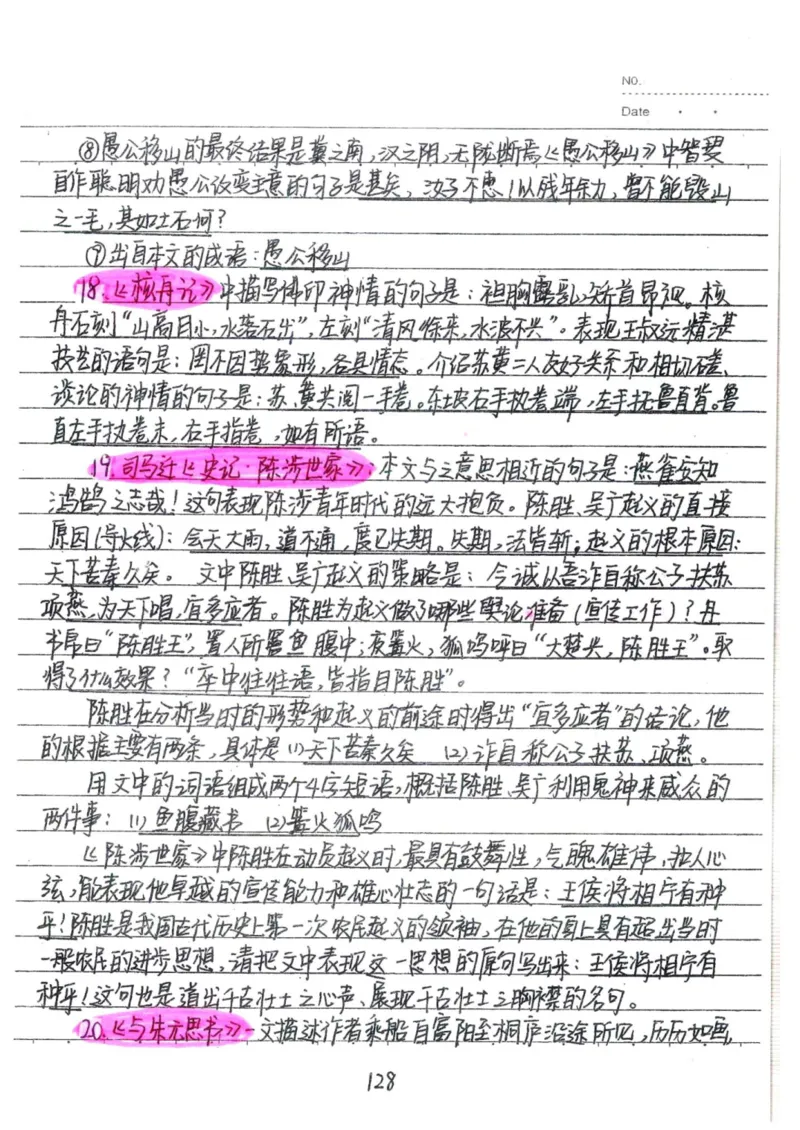 No.
Date
⑧愚公移山的最终结果是冀之南,汉之阴,无陇断焉《愚公移山》中智叟
自作聪明劝愚公改变主意的句子是甚矣,汝之不惠!以残年余力,曾不能毁山
之一毛,其如土石何?
⑨出自本文的成语:愚公移山
18.《核舟记》中描写佛印神情的句子是:袒胸露乳,矫首昂视。核
舟石刻“山高月小,水落石出”,左刻“清风徐来,水波不兴”。表现王叔远精湛
技艺的语句是:罔不因势象形,各具情态。介绍苏黄二人友好关系和相切磋、
谈论的神情的句子是:苏、黄共阅一手卷。东坡右手执卷端,左手抚鲁直背。鲁
直左手执卷末,右手指卷,如有所语。
19.司马迁《史记·陈涉世家》:本文与之意思相近的句子是:燕雀安知
鸿鹄之志哉!这句表现陈涉青年时代的远大抱负。陈胜、吴广起义的直接
原因(导火线):会天大雨,道不通,度已失期。失期,法皆斩;起义的根本原因:
天下苦秦久矣。 文中陈胜、吴广起义的策略是:今诚以吾诈自称公子扶苏
项燕,为天下唱,宜多应者。陈胜为起义做了哪些舆论准备(宣传工作)?丹
书帛曰“陈胜王”,置人所罾鱼腹中;夜篝火,狐鸣呼曰“大楚兴,陈胜王”。取
得了什么效果?“卒中往往语,皆指目陈胜”。
陈胜在分析当时的形势和起义的前途时得出“宜多应者”的结论,他
的根据主要有两条,具体是(1)天下苦秦久矣 (2)诈自称公子扶苏、项燕。
用文中的词语组成两个4字短语,概括陈胜、吴广利用鬼神来威众的
两件事:(1)鱼腹藏书 (2)篝火狐鸣
《陈涉世家》中陈胜在动员起义时,最具有鼓舞性,气魄雄伟,扣人心
弦,能表现他卓越的宣传能力和雄心壮志的一句话是:王侯将相宁有种
乎!陈胜是我国古代历史上第一次农民起义的领袖,在他的身上具有超出当时
一般农民的进步思想,请把文中表现这一思想的原句写出来:王侯将相宁有
种乎!这句也是道出千古壮士之心声、展现千古壮士之胸襟的名句。
20.《与朱元思书》一文描述作者乘船自富阳至桐庐沿途所见,历历如画,
128